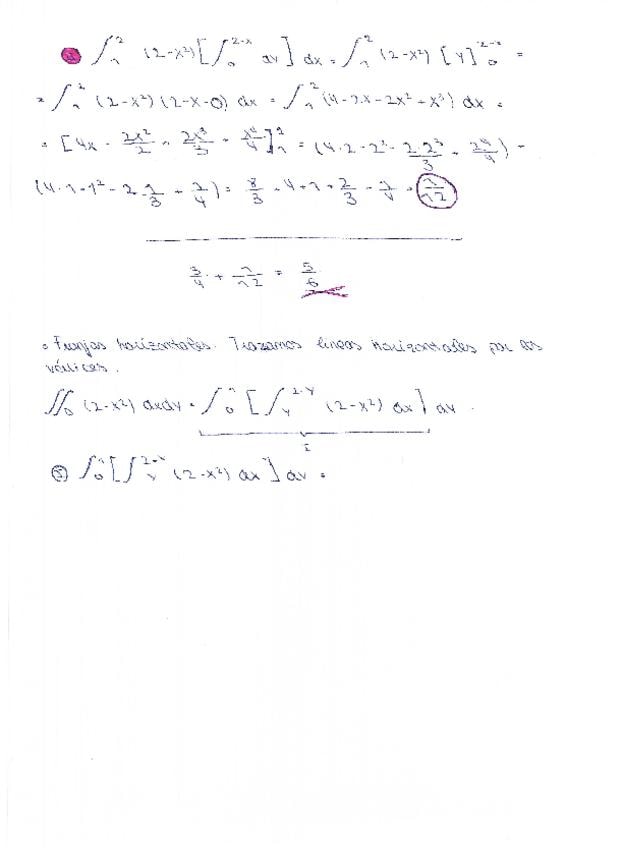 ② ∫₁² (2-x²) [∫₀²⁻ˣ dy] dx = ∫₁² (2-x²) [y]₀²⁻ˣ =
= ∫₁² (2-x²)(2-x-0) dx = ∫₁² (4-2x-2x²+x³) dx =
= [4x - 2x²/2 - 2x³/3 + x⁴/4]₁² = (4·2-2²- 2·2³/3 + 2⁴/4) -
(4·1-1²-2·1/3 + 1/4) = 8/3 - 4+1+ 2/3 - 1/4 = 1/12
3/4 + 1/12 = 5/6
• Franjas horizontales. Trazamos líneas horizontales por los
vértices.
∬_D (2-x²) dxdy = ∫₀¹ [∫_y^{2-y} (2-x²) dx] dy.
I
① ∫₀¹ [∫_y^{2-y} (2-x²) dx] dy =